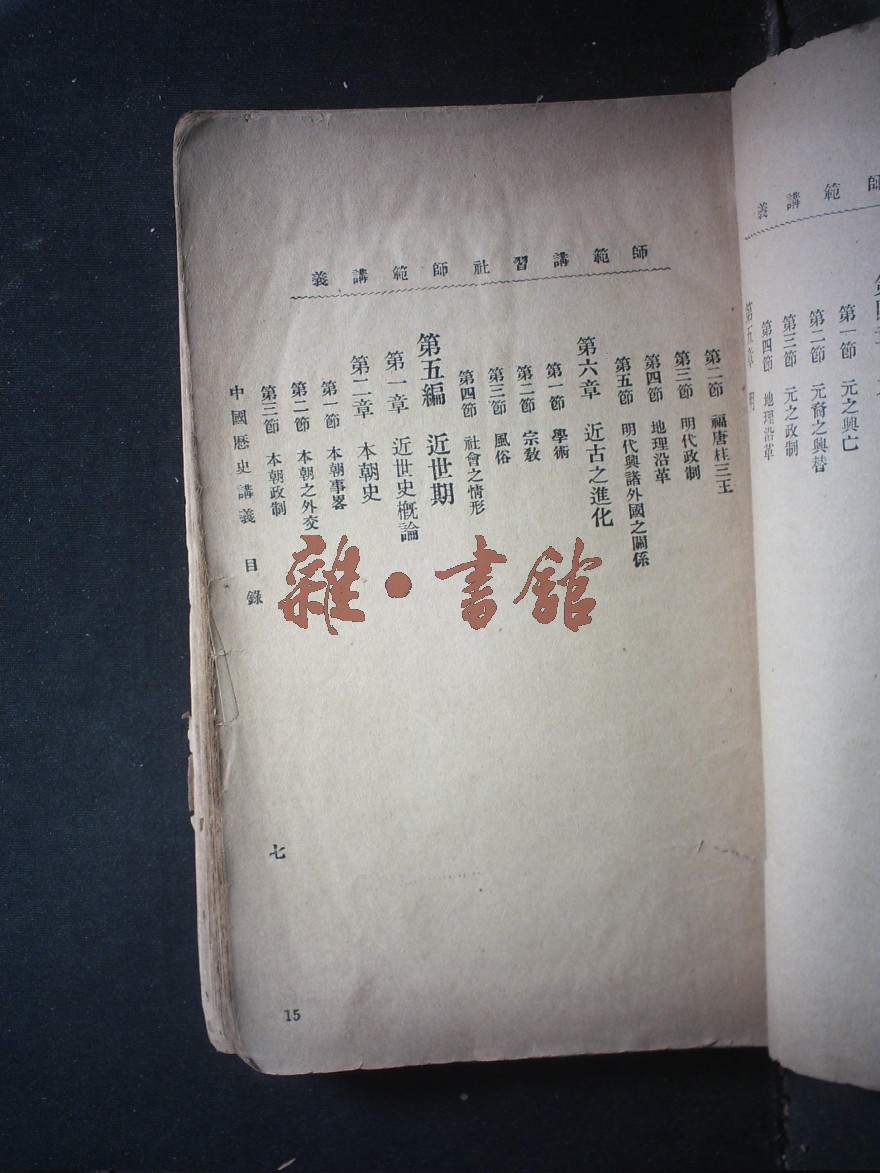 師範講
第一節　元之興亡
第二節　元裔之興替
第三節　元之政制
第四節　地理沿革
第五章　明
師範講習社師範講義
第二節　福唐桂三王
第三節　明代政制
第四節　地理沿革
第五節　明代興諸外國之關係
第六章　近古之進化
第一節　學術
第二節　宗敎
第三節　風俗
第四節　社會之情形
第五編　近世期
第一章　近世史槪論
第二章　本朝史
第一節　本朝事畧
第二節　本朝之外交
第三節　本朝政制
中國歷史講義　目錄
七
15
雜·書館